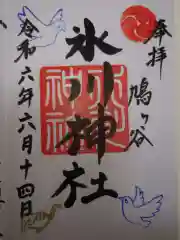 奉拝
鳩ヶ谷
氷川神社
令和六年六月十四日